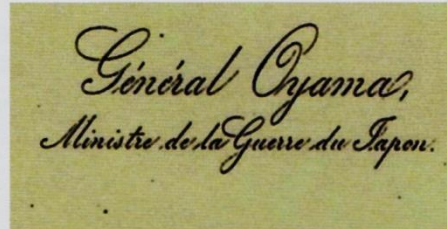 Général Oyama,
Ministre de la Guerre du Japon.